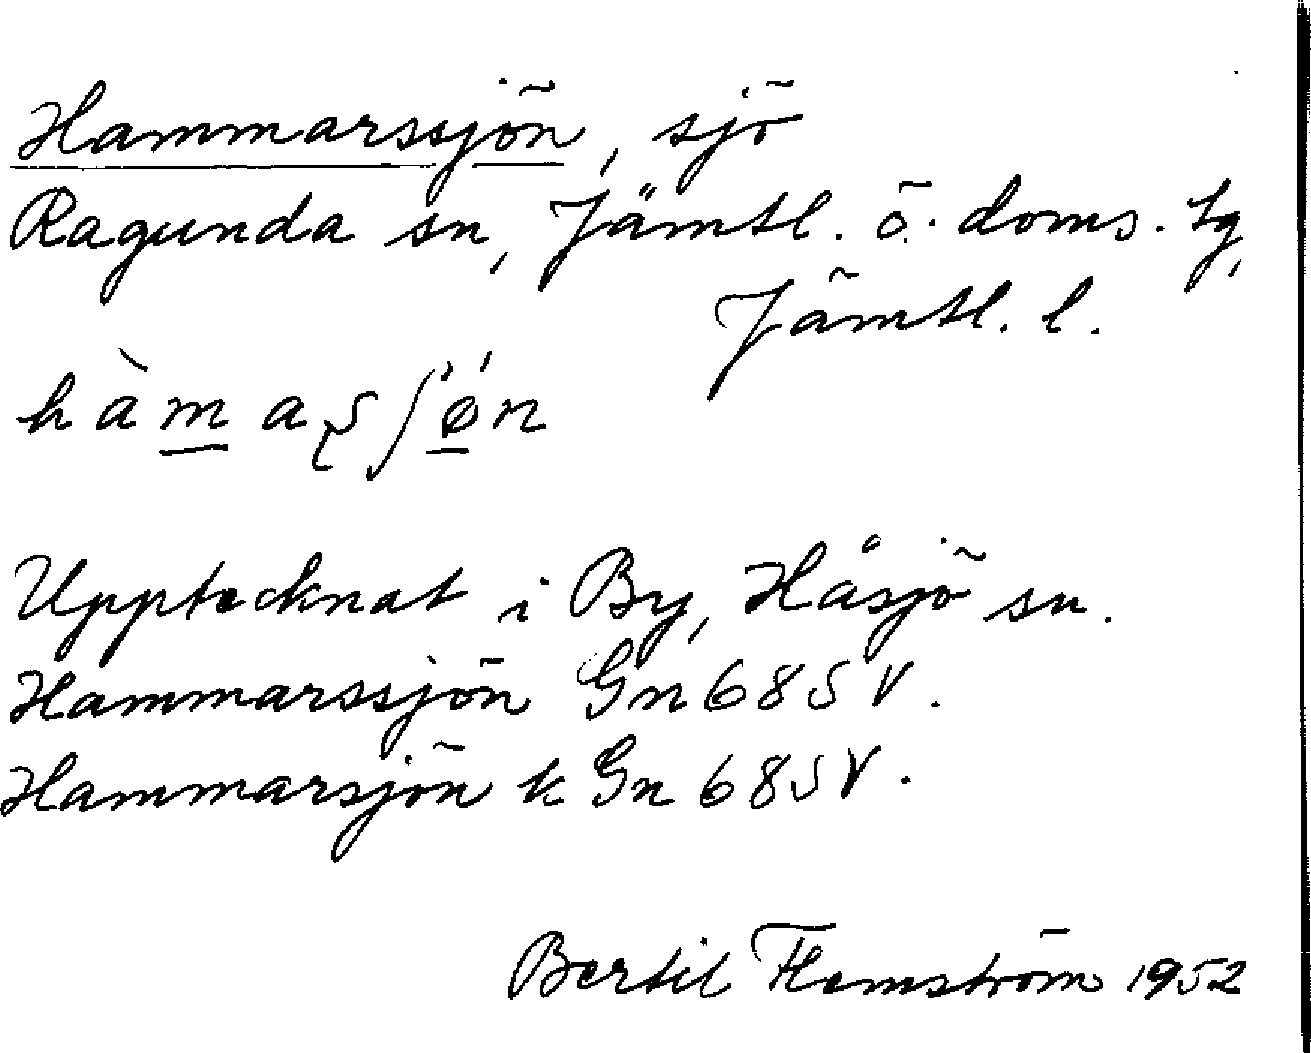 Hammarssjön, sjö
Ragunda sn, Jämtl. ö. doms. tg,
Jämtl. l.
hàmaʂʃǿn
Upptecknat i By, Håsjö sn.
Hammarssjön Gn 68 SV.
Hammarsjön k Gn 68 SV.
Bertil Flemström 1952